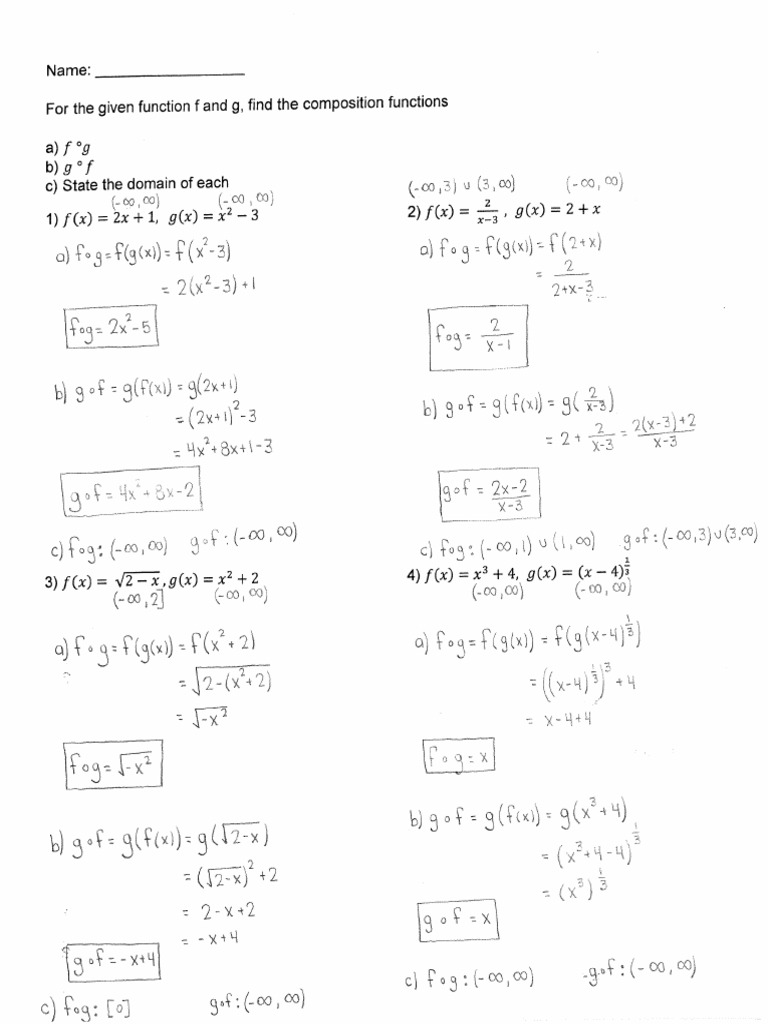 Name: ____________________
For the given function f and g, find the composition functions
a) f °g
b) g ° f
c) State the domain of each
(-∞, ∞) (-∞, ∞)
1) f(x) = 2x + 1, g(x) = x² − 3
a) fog = f(g(x)) = f(x²-3)
= 2(x²-3)+1
fog = 2x²-5
b) gof = g(f(x)) = g(2x+1)
= (2x+1)²-3
= 4x²+8x+1-3
gof = 4x²+8x-2
c) fog: (-∞, ∞) gof: (-∞, ∞)
(-∞,3) ∪ (3,∞) (-∞, ∞)
2) f(x) = 2/(x−3) , g(x) = 2 + x
a) fog = f(g(x)) = f(2+x)
= 2/(2+x-3)
fog = 2/(x-1)
b) gof = g(f(x)) = g(2/(x-3))
= 2 + 2/(x-3) = (2(x-3)+2)/(x-3)
gof = (2x-2)/(x-3)
c) fog: (-∞,1) ∪ (1,∞) gof: (-∞,3) ∪ (3,∞)
3) f(x) = √(2 − x), g(x) = x² + 2
(-∞,2] (-∞, ∞)
a) fog = f(g(x)) = f(x²+2)
= √(2-(x²+2))
= √(-x²)
fog = √(-x²)
b) gof = g(f(x)) = g(√(2-x))
= (√(2-x))²+2
= 2-x+2
= -x+4
gof = -x+4
c) fog: [0] gof: (-∞, ∞)
4) f(x) = x³ + 4, g(x) = (x − 4)^(1/3)
(-∞,∞) (-∞, ∞)
a) fog = f(g(x)) = f(g(x-4)^(1/3))
= ((x-4)^(1/3))³+4
= x-4+4
fog = x
b) gof = g(f(x)) = g(x³+4)
= (x³+4-4)^(1/3)
= (x³)^(1/3)
gof = x
c) fog: (-∞, ∞) gof: (-∞, ∞)